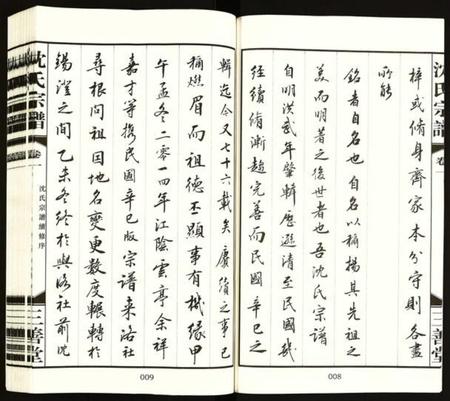 沈氏宗譜
卷一
三善堂
梓或脩身齊家本分守則各盡
所能
銘者自名也自名以稱揚其先祖之
美而明著之後世者也吾沈氏宗譜
自明洪武年肇輯歷遜清至民國幾
經續脩漸趨完善而民國辛巳之
008
輯迄今又七十六載矣賡脩之事已
稱燃眉而祖德丕顯事有機緣甲
午孟冬二零一四年江陰雲亭余祥
嘉才等攜民國辛巳版宗譜來洛社
尋根問祖因地名變更數度輾轉於
錫澄之間乙未冬終於與洛社前沈
009
沈氏宗譜
卷一
沈氏宗譜續修序
三善堂